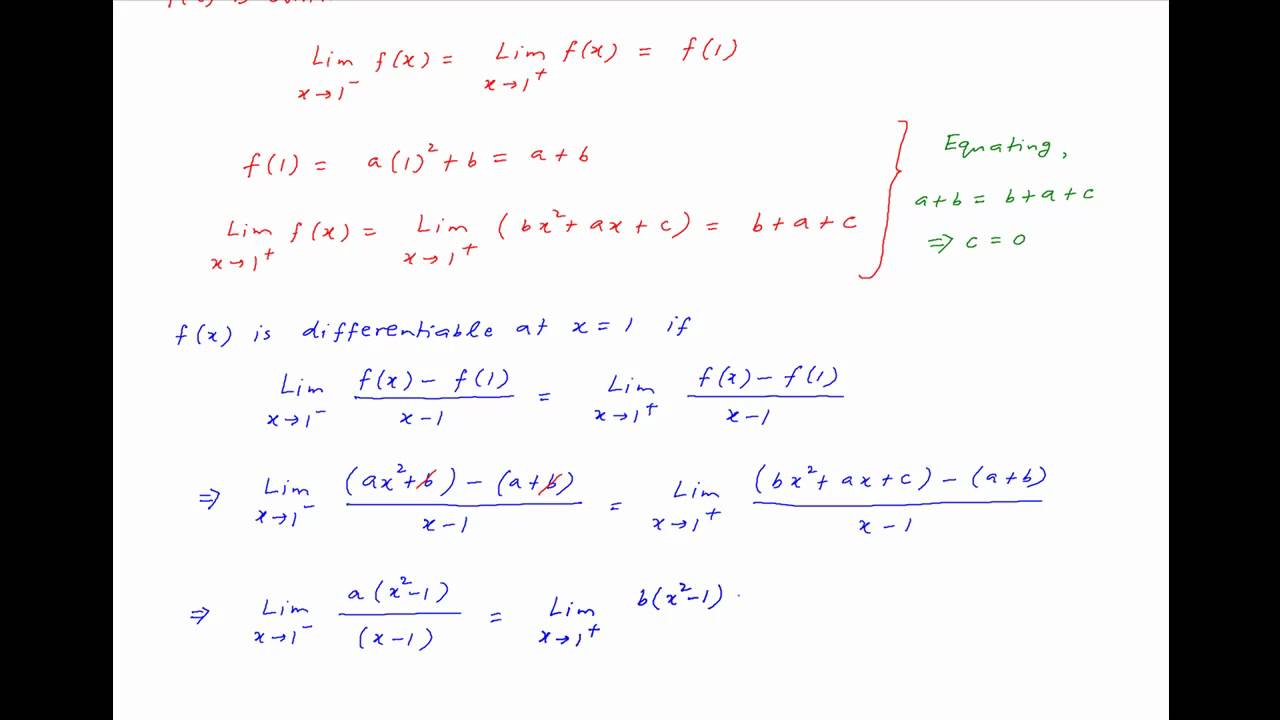 Lim x→1⁻ f(x) = Lim x→1⁺ f(x) = f(1)
f(1) = a(1)² + b = a + b
Lim x→1⁺ f(x) = Lim x→1⁺ (bx² + ax + c) = b + a + c
Equating,
a + b = b + a + c
⇒ c = 0
f(x) is differentiable at x = 1 if
Lim x→1⁻ (f(x) − f(1))/(x − 1) = Lim x→1⁺ (f(x) − f(1))/(x − 1)
⇒ Lim x→1⁻ ((ax² + b) − (a + b))/(x − 1) = Lim x→1⁺ ((bx² + ax + c) − (a + b))/(x − 1)
⇒ Lim x→1⁻ a(x² − 1)/(x − 1) = Lim x→1⁺ b(x² − 1)